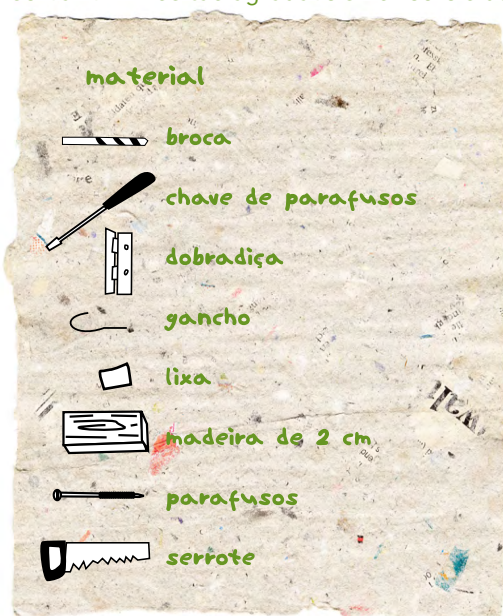 material
broca
chave de parafusos
dobradiça
gancho
lixa
madeira de 2 cm
parafusos
serrote